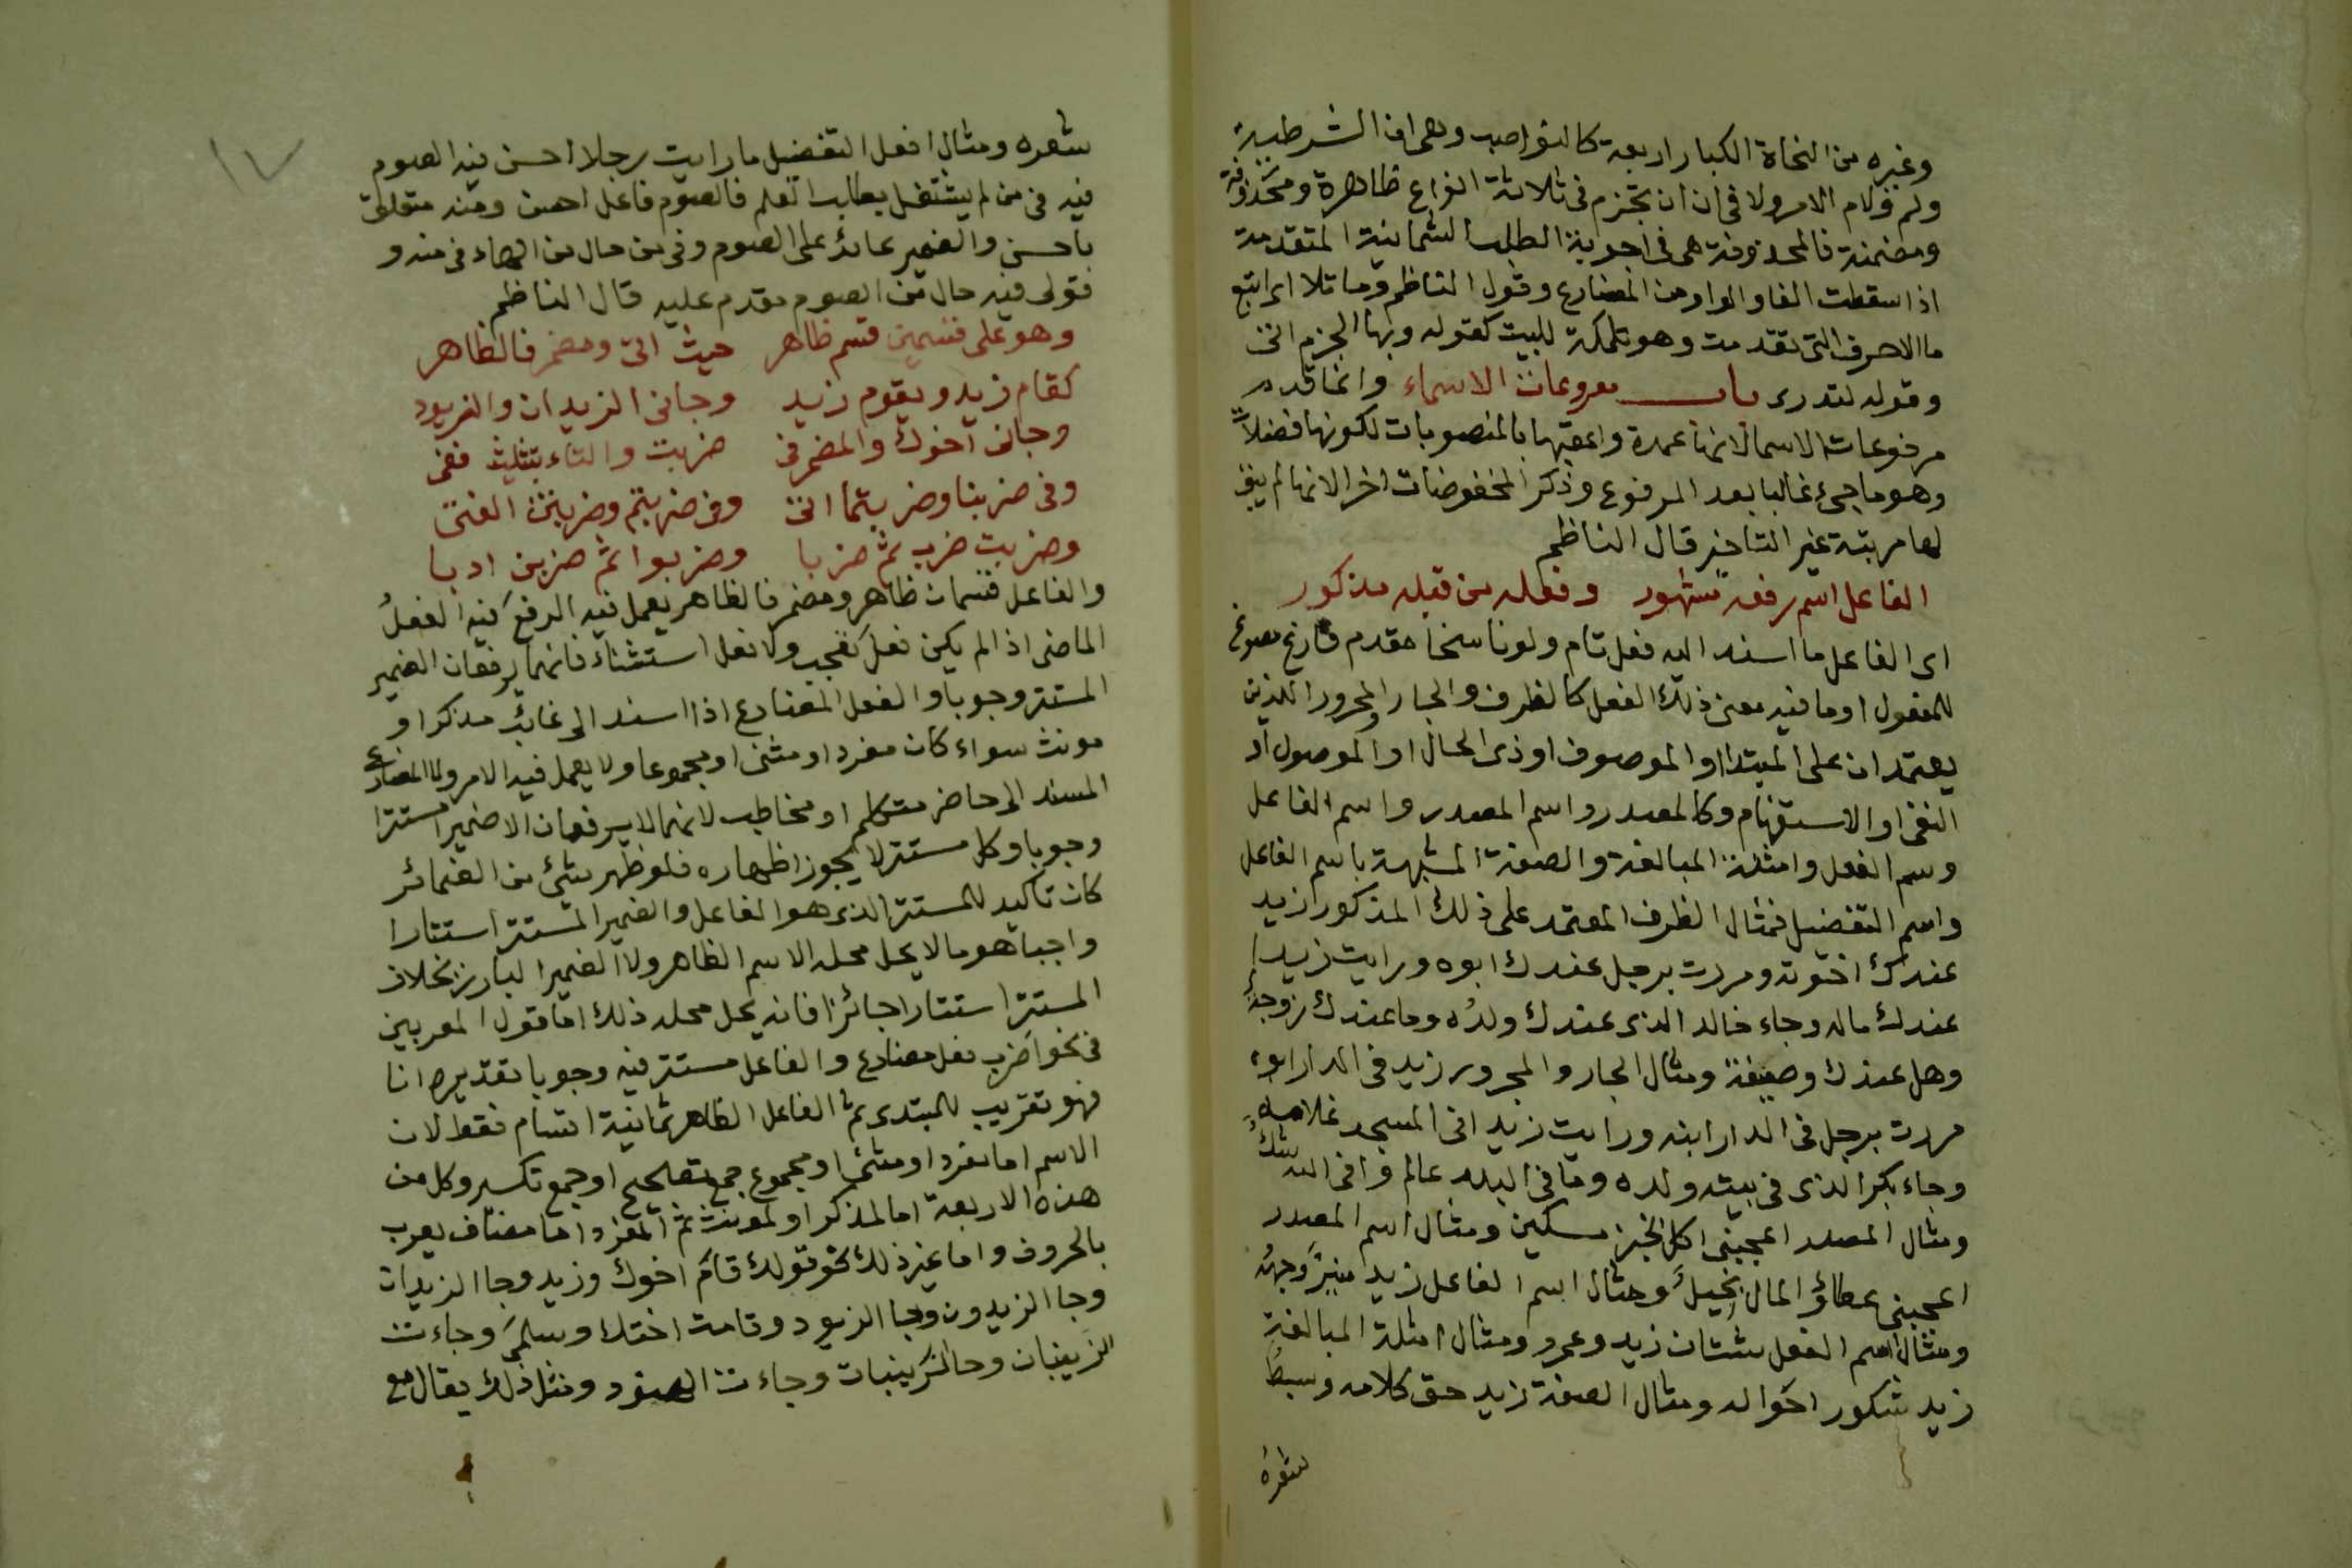 وغيره من النحاة الكبار اربعة كالنواصب وهى ان الشرطية
ولم ولام الامر ولا فى ان ان تجزم فى ثلاثة انواع ظاهرة ومحذوفة
ومضمنة فالمحذوفة هى فى اجوبة الطلب الثمانية المتقدمة
اذا سقطت الفا والواو من المضارع وقول الناظم وما تلا اى اتبع
ما الاحرف التى تقدمت وهو تكملة للبيت كقوله وبها الجزم اتى
وقوله لتدرى باب مرفوعات الاسماء وانما قدم
مرفوعات الاسما لانها عمدة واعقبها بالمنصوبات لكونها فضلاً
وهو ما جىء غالبا بعد المرفوع وذكر المخفوضات اخر الانها لم يبق
لها مرتبة غير التاخير قال الناظم
الفاعل اسم رفعه مشهور وفعله من قبله مذكور
اى الفاعل ما اسند اليه فعل تام ولو ناسخا مقدم فارغ مصوغ
للمفعول او ما فيه معنى ذلك الفعل كالظرف والجار والمجرور اللذين
يعتمدان على المبتدا او الموصوف او ذى الحال او الموصول او
النفى او الاستفهام وكالمصدر واسم المصدر واسم الفاعل
وسم الفعل وامثلة المبالغة والصفة المشبهة باسم الفاعل
واسم التفضيل فمثال الظرف المعتمد على ذلك المذكور ازيد
عندك اخوته ومررت برجل عندك ابوه ورايت زيدا
عندك ماله وجاء خالد الذى عندك ولدُه وما عندك زوجةٌ
وهل عندك وصيفة ومثال الجار والمجرور زيد فى الدار ابوه
مررت برجل فى الدار ابنه ورايت زيدا فى المسجد غلامه
وجاء بكر الذى فى بيته ولده وما فى البلد عالم وافى الله شكٌ
ومثال المصدر اعجبنى اكل الخبز مسكين ومثال اسم المصدر
اعجبنى عطاؤ المال بخيل ومثال اسم الفاعل زيد منير وجهُه
ومثال اسم الفعل شتان زيد وعمرو ومثال امثلة المبالغة
زيد شكور اخواله ومثال الصفة زيد حق كلامه وسبط
شعره
١٧
شعره ومثال افعل التفضيل ما رايت رجلا احسن فيه الصوم
فيه فى من لم يشتغل بطلب العلم فالصوم فاعل احسن ومنه متعلق
باحسن والضمير عائد على الصوم وفى من حال من الهاء فى منه و
قولى فيه حال من الصوم مقدم عليه قال الناظم
وهو على قسمين قسم ظاهر حيث اتى ومضمر فالظاهر
كقام زيد ويقوم زيد وجانى الزيدان والزيود
وجانى اخوك والمضمر فى ضربت والتاء بتثليث ففى
وفى ضربنا وضربتما اتى وفى ضربتم وضربتن الفتى
وضربت ضرب ثم ضربا وضربوا ثم ضربن ادبا
والفاعل قسمان ظاهر ومضمر فالظاهر يعمل فيه الرفع فيه الفعلُ
الماضى اذا لم يكن فعل تعجب ولا فعل استثناء فانهما يرفعان الضمير
المستتر وجوبا والفعل المضارع اذا اسند الى غائب مذكرا و
مونث سواء كان مفردا او مثنى او مجموعا ولا يعمل فيه الامر ولا المضارع
المسند الى حاضر متكلم او مخاطب لانهما لا يرفعان الا ضميرا مستترا
وجوبا وكل مستتر لا يجوز اظهاره فلو ظهر شئ من الضمائر
كان تاكيد للمستتر الذى هو الفاعل والضمير المستتر استتارا
واجبا هو ما لا يحل محله الاسم الظاهر ولا الضمير البارز بخلاف
المستتر استتارا جائزا فانه يحل محله ذلك اما قول المعربين
فى نحو اضرب فعل مضارع والفاعل مستتر فيه وجوبا تقديره انا
فهو تقريب للمبتدى ثم الفاعل الظاهر ثمانية اقسام فقط لان
الاسم اما مفرد او مثنى او مجموع جمع تصحيح او جمع تكسير وكل من
هذه الاربعة اما لمذكر او لمونث ثم المفرد اما مضاف يعرب
بالحروف واما غير ذلك نحو قولك قام اخوك وزيد وجا الزيدان
وجا الزيدون وجا الزيود وقامت اختك وسلمى وجاءت
الزينبان وجا الزينبات وجاءت الهنود ومثل ذلك يقال مع